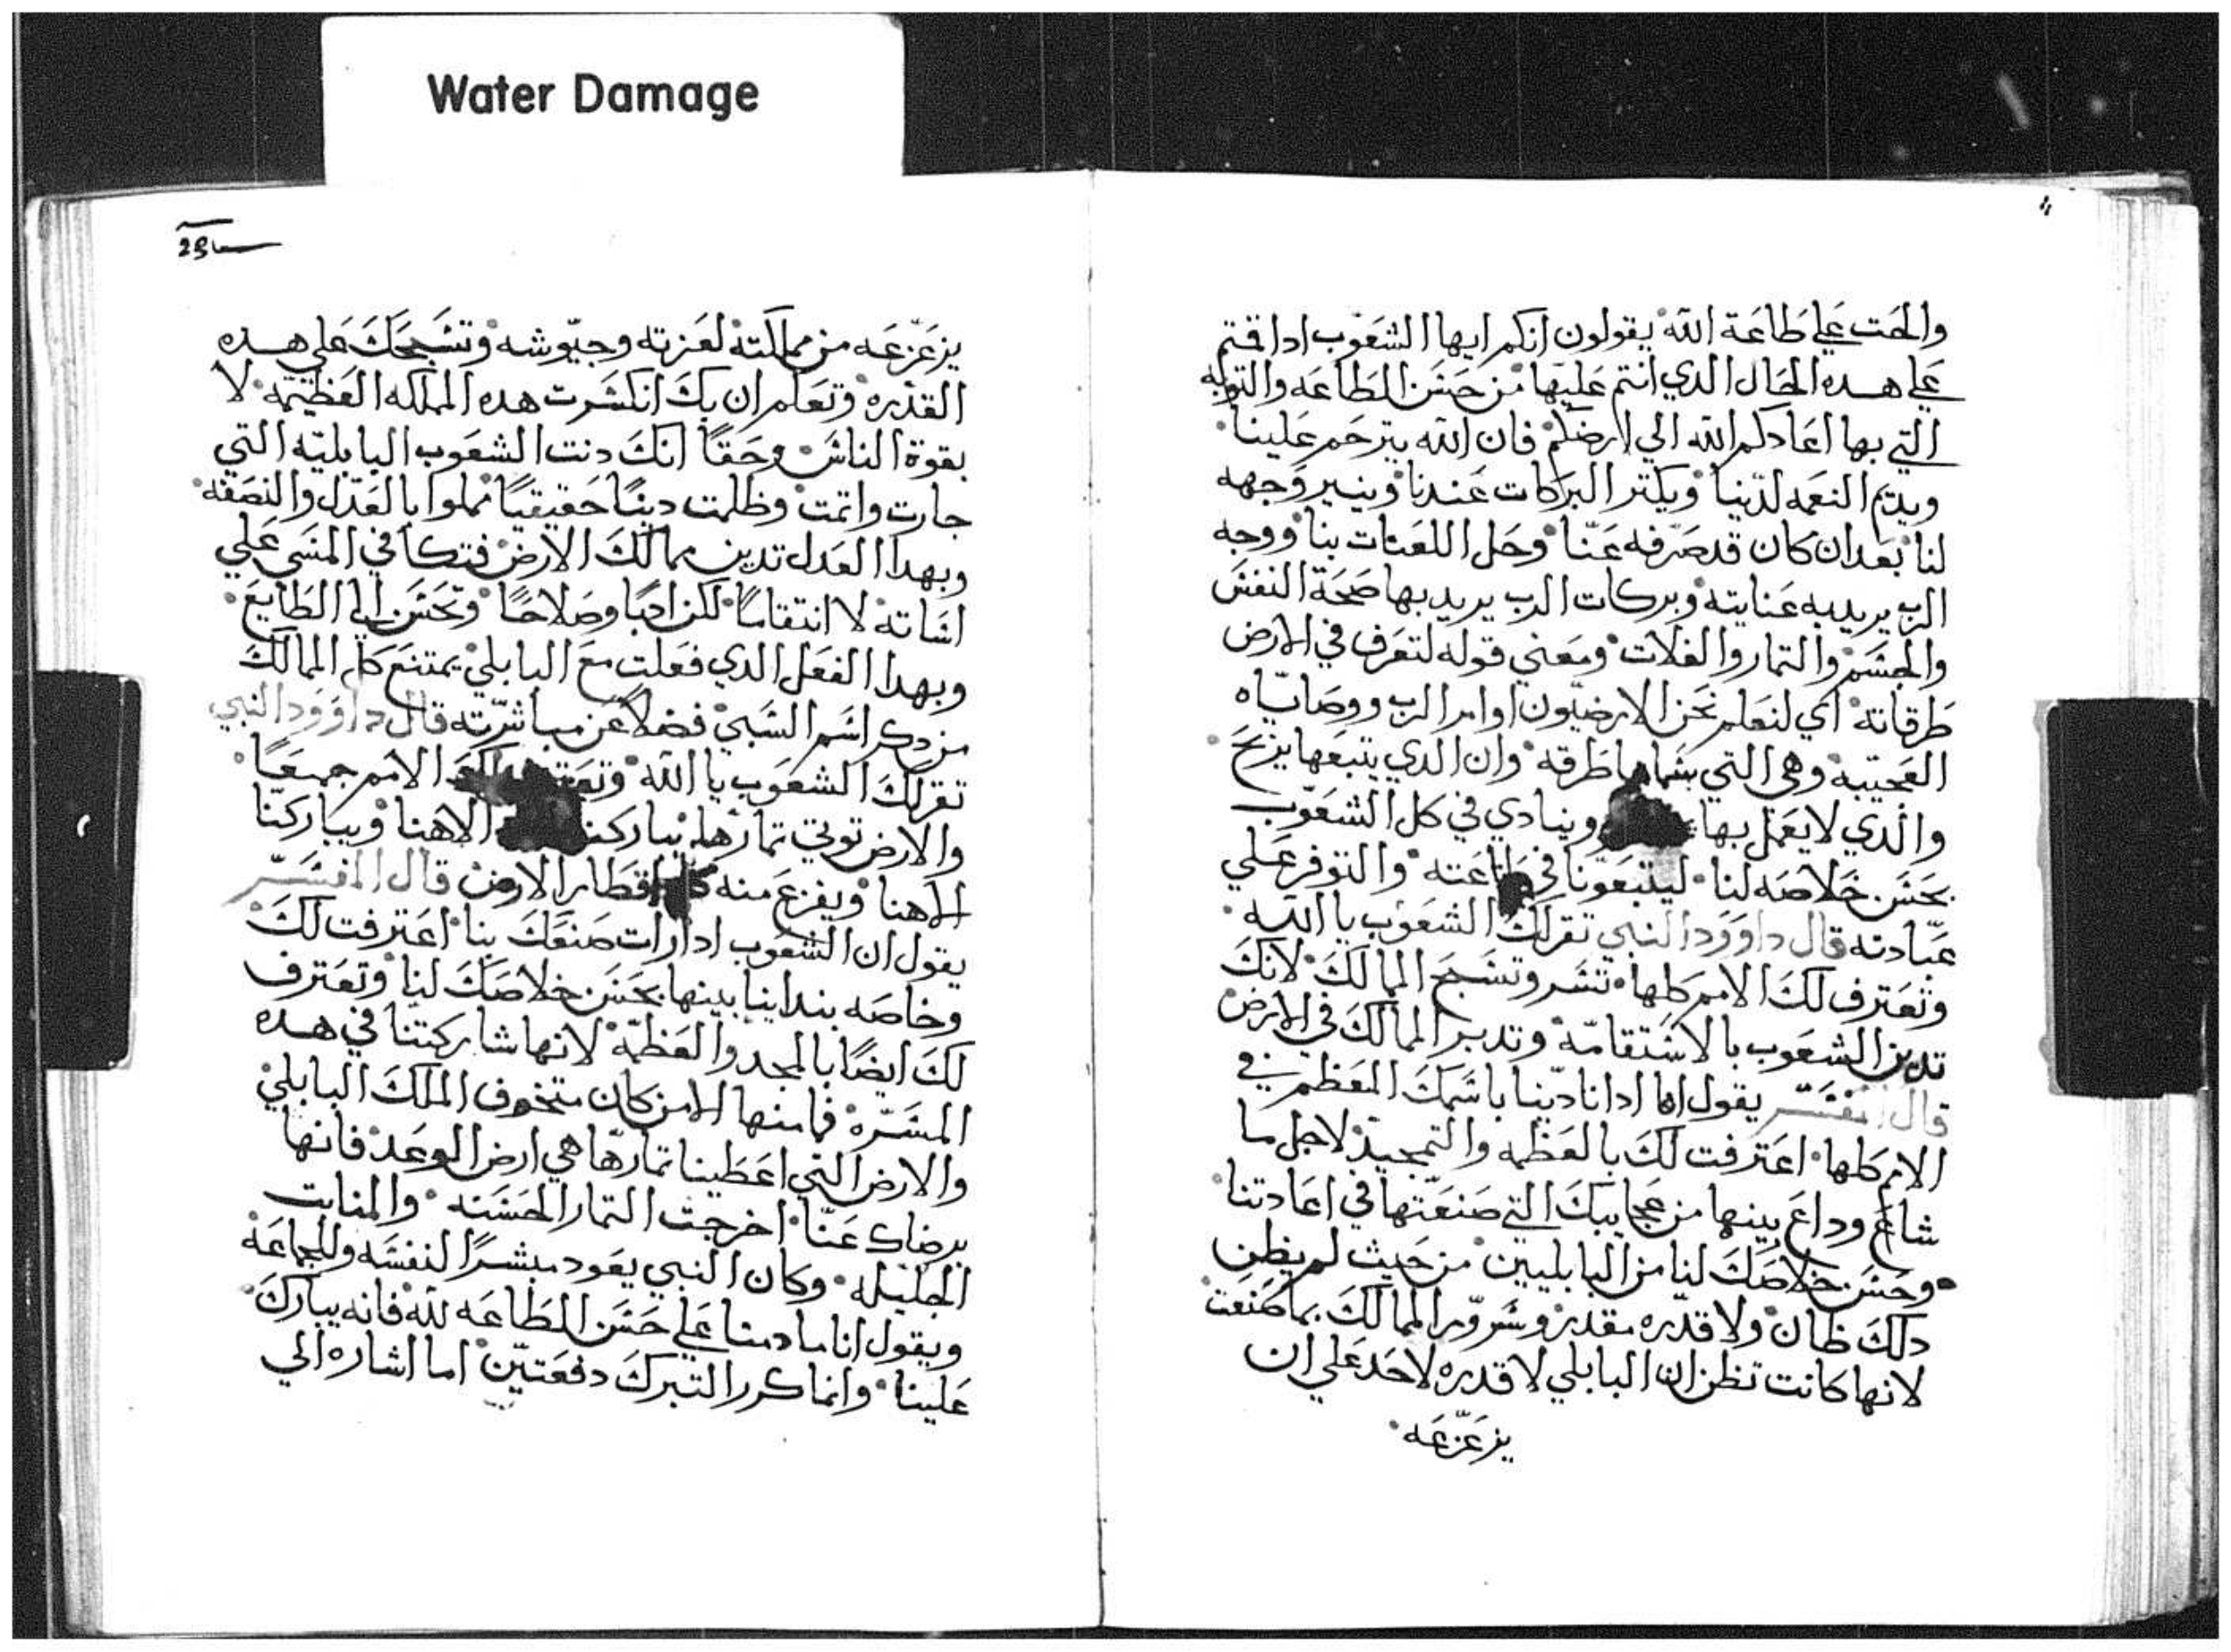 Water Damage
والحت علي طاعة الله يقولون انكم ايها الشعوب ادا اقتم
علي هده الحال الدي انتم عليها من حسن الطاعه والتوبه
التي بها اعادكم الله الي ارضكم فان الله يترحم علينا
ويديم النعمه لدينا ويكتر البركات عندنا وينير وجهه
لنا بعد ان كان قد صرفه عنا وحل اللعنات بنا ووجه
الرب يريد به عنايته وبركات الرب يريد بها صحة النفس
والجسم والتمار والغلات ومعني قوله لتعرف في الارض
طرقاته اي لنعلم نحن الارضيون اوامر الرب ووصاياه
العجيبه وهي التي بسماها طرقه وان الدي يتبعها يربح
والدي لا يعمل بها وينادي في كل الشعوب
بحسن خلاصه لنا ليتبعونا في طاعته والتوفر علي
عبادته قال داوود النبي تقر لك الشعوب يا الله
وتعترف لك الامم كلها تسر وتسبح الممالك لانك
تدين الشعوب بالاستقامة وتدبر الممالك في الارض
قال المفسر يقول اما ادا نادينا باسمك المعظم في
الامم كلها اعترفت لك بالعظمه والتمجيد لاجل ما
شاع وداع بينها من عجايبك التي صنعتها في اعادتنا
وحسن خلاصك لنا من البابليين من حيث لم يظن
دلك ظان ولا قدره مقدر وسرور الممالك بما صنعت
لانها كانت تظن ان البابلي لا قدره لاحد علي ان
يزعزعه
23
يزعزعه من مملكته لعزته وجيوشه وتسبحك علي هده
القدره وتعلم ان بك انكسرت هده المملكه العظيمه لا
بقوة الناس وحقا انك دنت الشعوب البابليه التي
جارت واتمت وظلمت دينا حقيقيا مملوا بالعدل والنصفه
وبهدا العدل تدين ممالك الارض فتكافي المسي علي
اساته لا انتقاما لكن ادبا وصلاحا وتحسن الي الطايع
وبهدا الفعل الدي فعلت مع البابلي يمتنع كل الممالك
من دكر اسم السبي فضلا عن مباشرته قال داوود النبي
تقر لك الشعوب يا الله وتعترف لك الامم جميعا
والارض توتي تمارها يباركنا الاهنا ويباركنا
الاهنا ويفزع منه كل اقطار الارض قال المفسر
يقول ان الشعوب ادا رات صنعك بنا اعترفت لك
وخاصه بنداينا بينها بحسن خلاصك لنا وتعترف
لك ايضا بالمجد والعظمة لانها شاركتنا في هده
المسرة فما منها الا من كان متخوف الملك البابلي
والارض التي اعطينا تمارها هي ارض الوعد فانها
برضاك عنا اخرجت التمار الحسنه والمنابت
الجليله وكان النبي يعود مبشرا لنفسه وللجماعة
ويقول انا ما دمنا علي حسن الطاعه لله فانه يبارك
علينا وانما كرر التبرك دفعتين اما اشاره الي